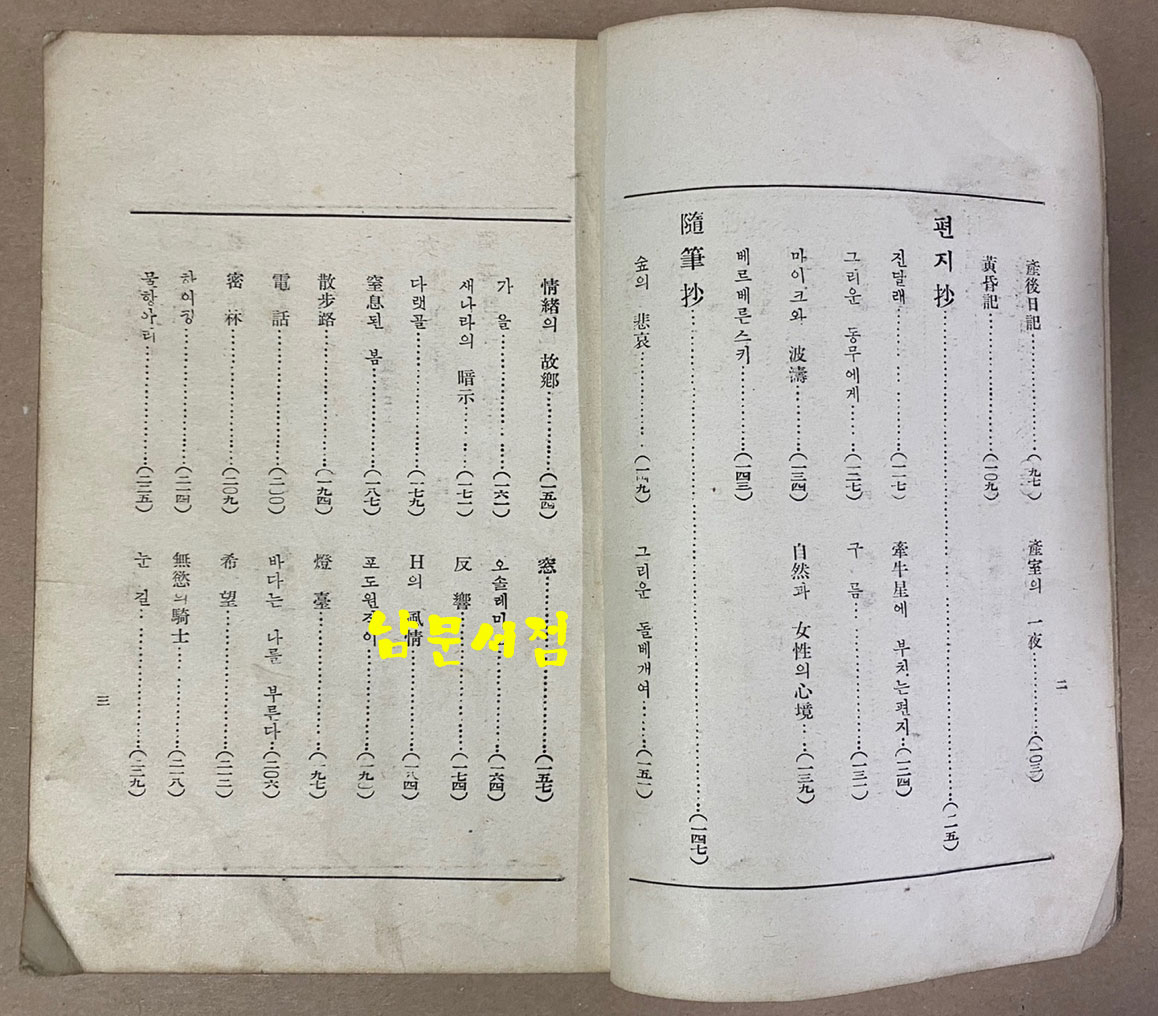 產後日記(九七)
產室의 一夜(一〇三)
黃昏記(一〇九)
편지抄(一一五)
진달래(一一七)
牽牛星에 부치는편지(一二四)
그리운 동무에게(一二七)
구름(一三一)
마이크와 波濤(一三四)
自然과 女性의心境(一三九)
베르베른스키(一四三)
隨筆抄(一四七)
숲의 悲哀(一四九)
그리운 돌베개여(一五一)
二
情緖의 故鄕(一五四)
窓(一五七)
가을(一六一)
오솔레미
새나라의 暗示(一七一)
反響(一七四)
다랫골(一七九)
H의 風情(一八四)
窒息된 봄(一八七)
포도원
散步路(一九四)
燈臺(一九七)
電話(二〇〇)
바다는 나를 부른다(二〇六)
密林(二〇九)
希望(二一二)
하이킹(二一四)
無慾의騎士(二一八)
물항아리(二二五)
눈길(二二九)
三
남문서점